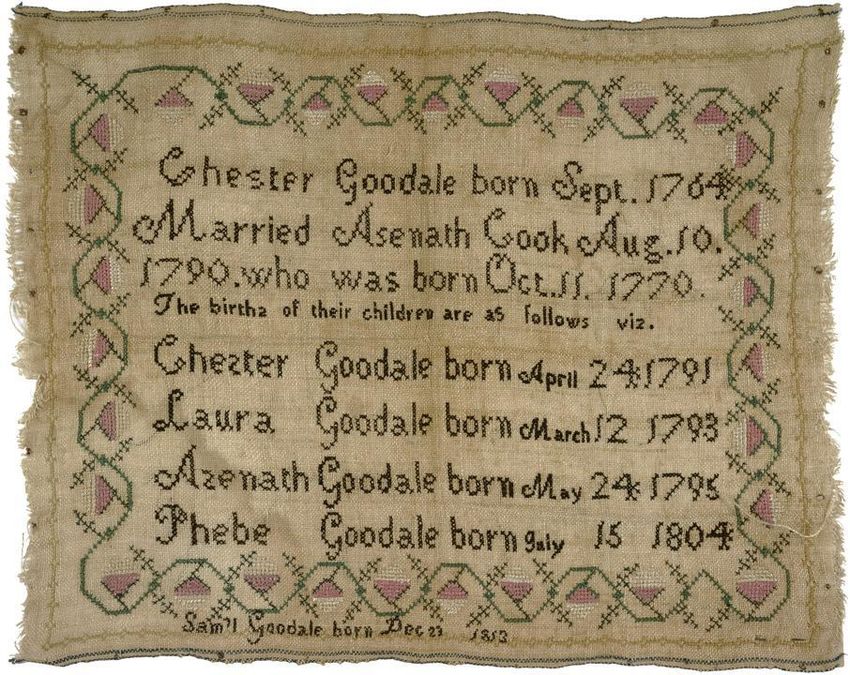 Chester Goodale born Sept. 1764
Married Asenath Cook Aug. 10.
1790. who was born Oct. 11. 1770.
The births of their children are as follows viz.
Chester Goodale born April 24 1791
Laura Goodale born March 12 1793
Azenath Goodale born May 24 1795
Phebe Goodale born July 15 1804
Sam'll Goodale born Dec 1813